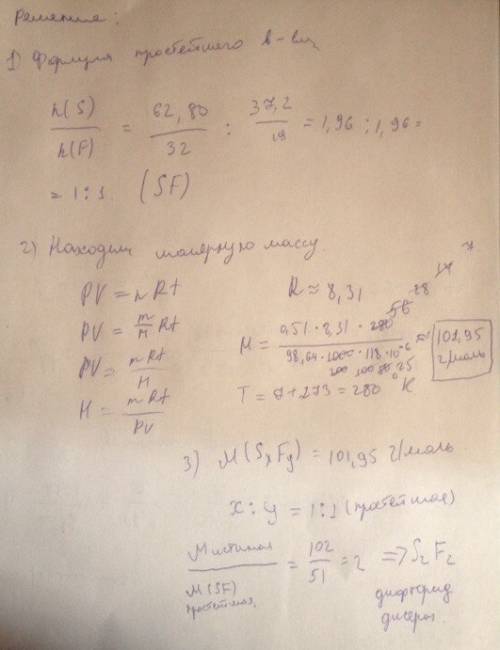 Решение:
1) Формула простейшего в-ва
n(S)/n(F) = 62,80/32 : 37,2/19 = 1,96 : 1,96 =
= 1:1 (SF)
2) Находим молярную массу.
PV = nRt
PV = m/M Rt
PV = mRt/M
M = mRt/PV
R ≈ 8,31
M = 0,51·8,31·280/98,64·1000·118·10⁻⁶ ≈ 101,95 г/моль
56 28 14 7
200 100 50 25
T = 7+273 = 280 °K
3) M(SxFy) = 101,95 г/моль
x:y = 1:1 (простейшая)
M истинная/M(SF) простейшая = 102/51 = 2 => S₂F₂
дифторид
дисеры